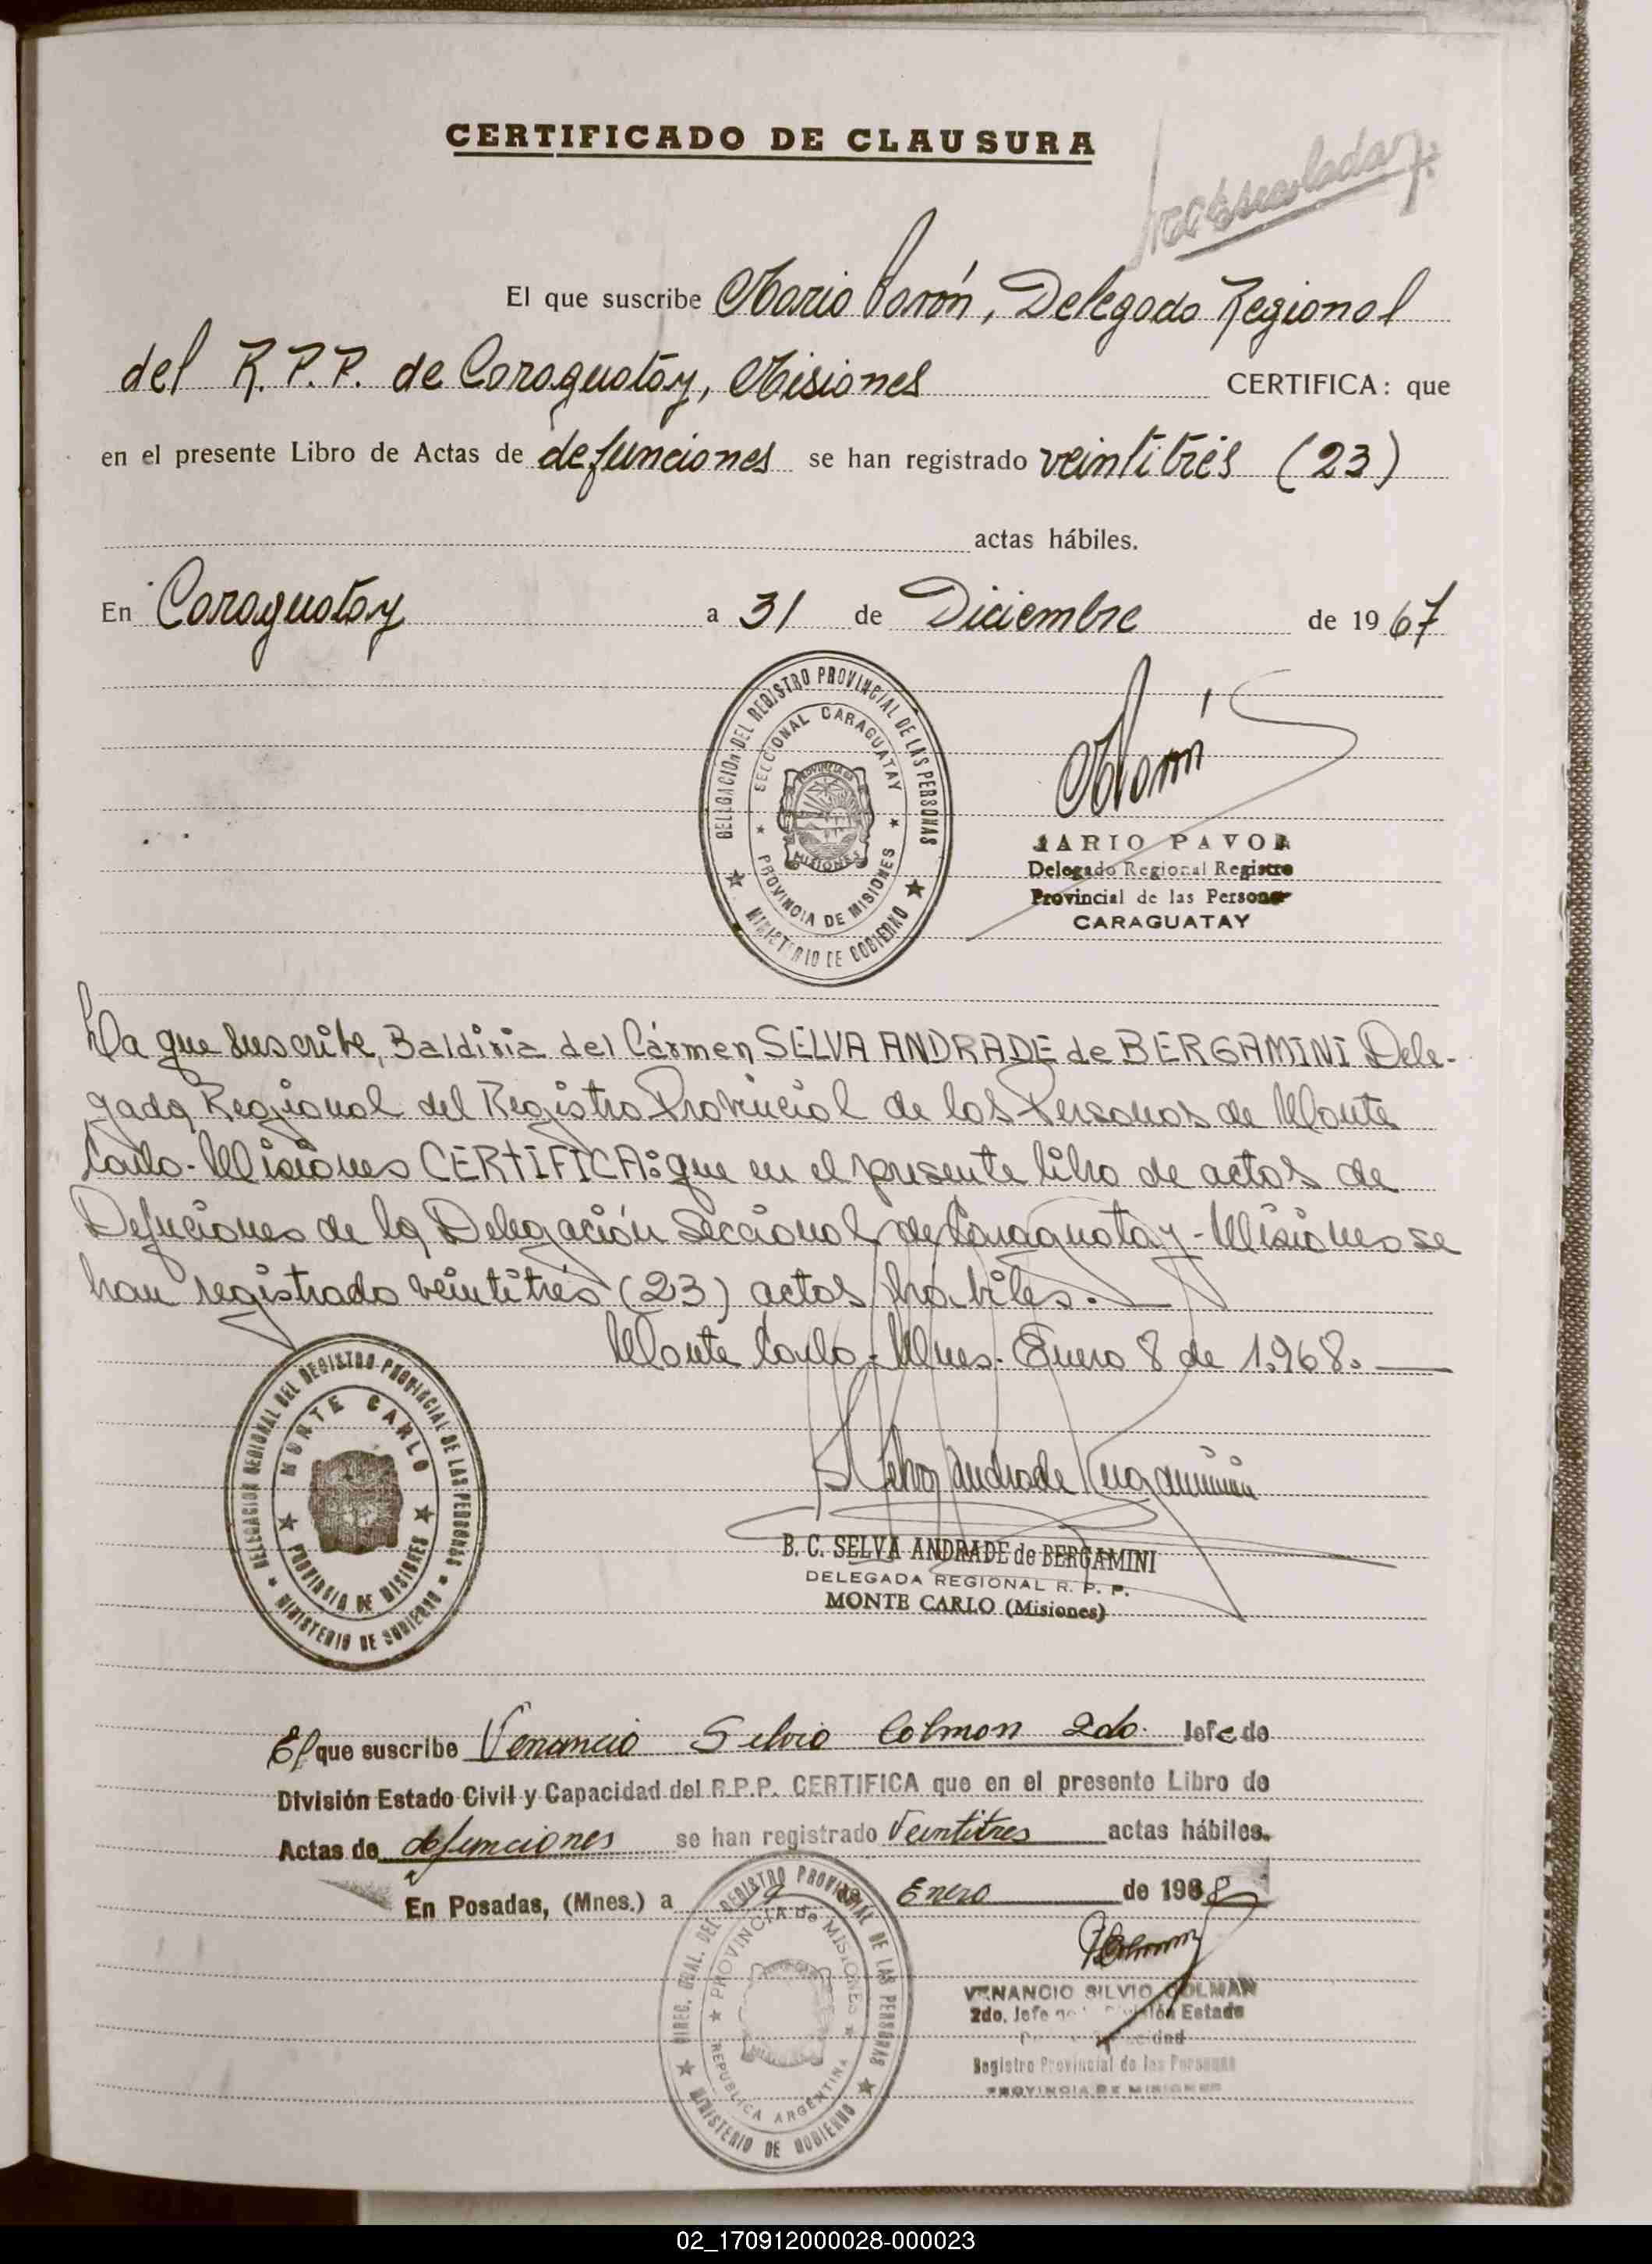 CERTIFICADO DE CLAUSURA
El que suscribe Mario Pavón, Delegado Regional
del R.P.P. de Caraguatay, Misiones CERTIFICA: que
en el presente Libro de Actas de defunciones se han registrado veintitrés (23)
actas hábiles.
En Caraguatay a 31 de Diciembre de 1967
DELEGACION DEL REGISTRO PROVINCIAL DE LAS PERSONAS
SECCIONAL CARAGUATAY
PROVINCIA DE MISIONES
MINISTERIO DE GOBIERNO
ARIO PAVO
Delegado Regional Registro
Provincial de las Personas
CARAGUATAY
La que suscribe, Baldiria del Cármen SELVA ANDRADE de BERGAMINI Dele-
gada Regional del Registro Provincial de las Personas de Monte
Carlo-Misiones CERTIFICA: que en el presente libro de actas de
Defuciones de la Delegación Seccional de Caraguatay-Misiones se
han registrado veintitrés (23) actas hábiles.
Monte Carlo-Mnes. Enero 8 de 1.968.
DELEGACION REGIONAL DEL REGISTRO PROVINCIAL DE LAS PERSONAS
MONTE CARLO
PROVINCIA DE MISIONES
MINISTERIO DE GOBIERNO
B. C. SELVA ANDRADE de BERGAMINI
DELEGADA REGIONAL R. P. P.
MONTE CARLO (Misiones)
El que suscribe Venancio Silvio Colman 2do. Jefe de
División Estado Civil y Capacidad del R.P.P. CERTIFICA que en el presente Libro de
Actas de defunciones se han registrado Veintitres actas hábiles.
En Posadas, (Mnes.) a 9 Enero de 1968
DIREC. GRAL. DEL REGISTRO PROVINCIAL DE LAS PERSONAS
PROVINCIA de MISIONES
REPUBLICA ARGENTINA
MINISTERIO DE GOBIERNO
VENANCIO SILVIO COLMAN
2do. Jefe Estado
Registro Provincial de las Personas
PROVINCIA DE MISIONES
02_170912000028-000023